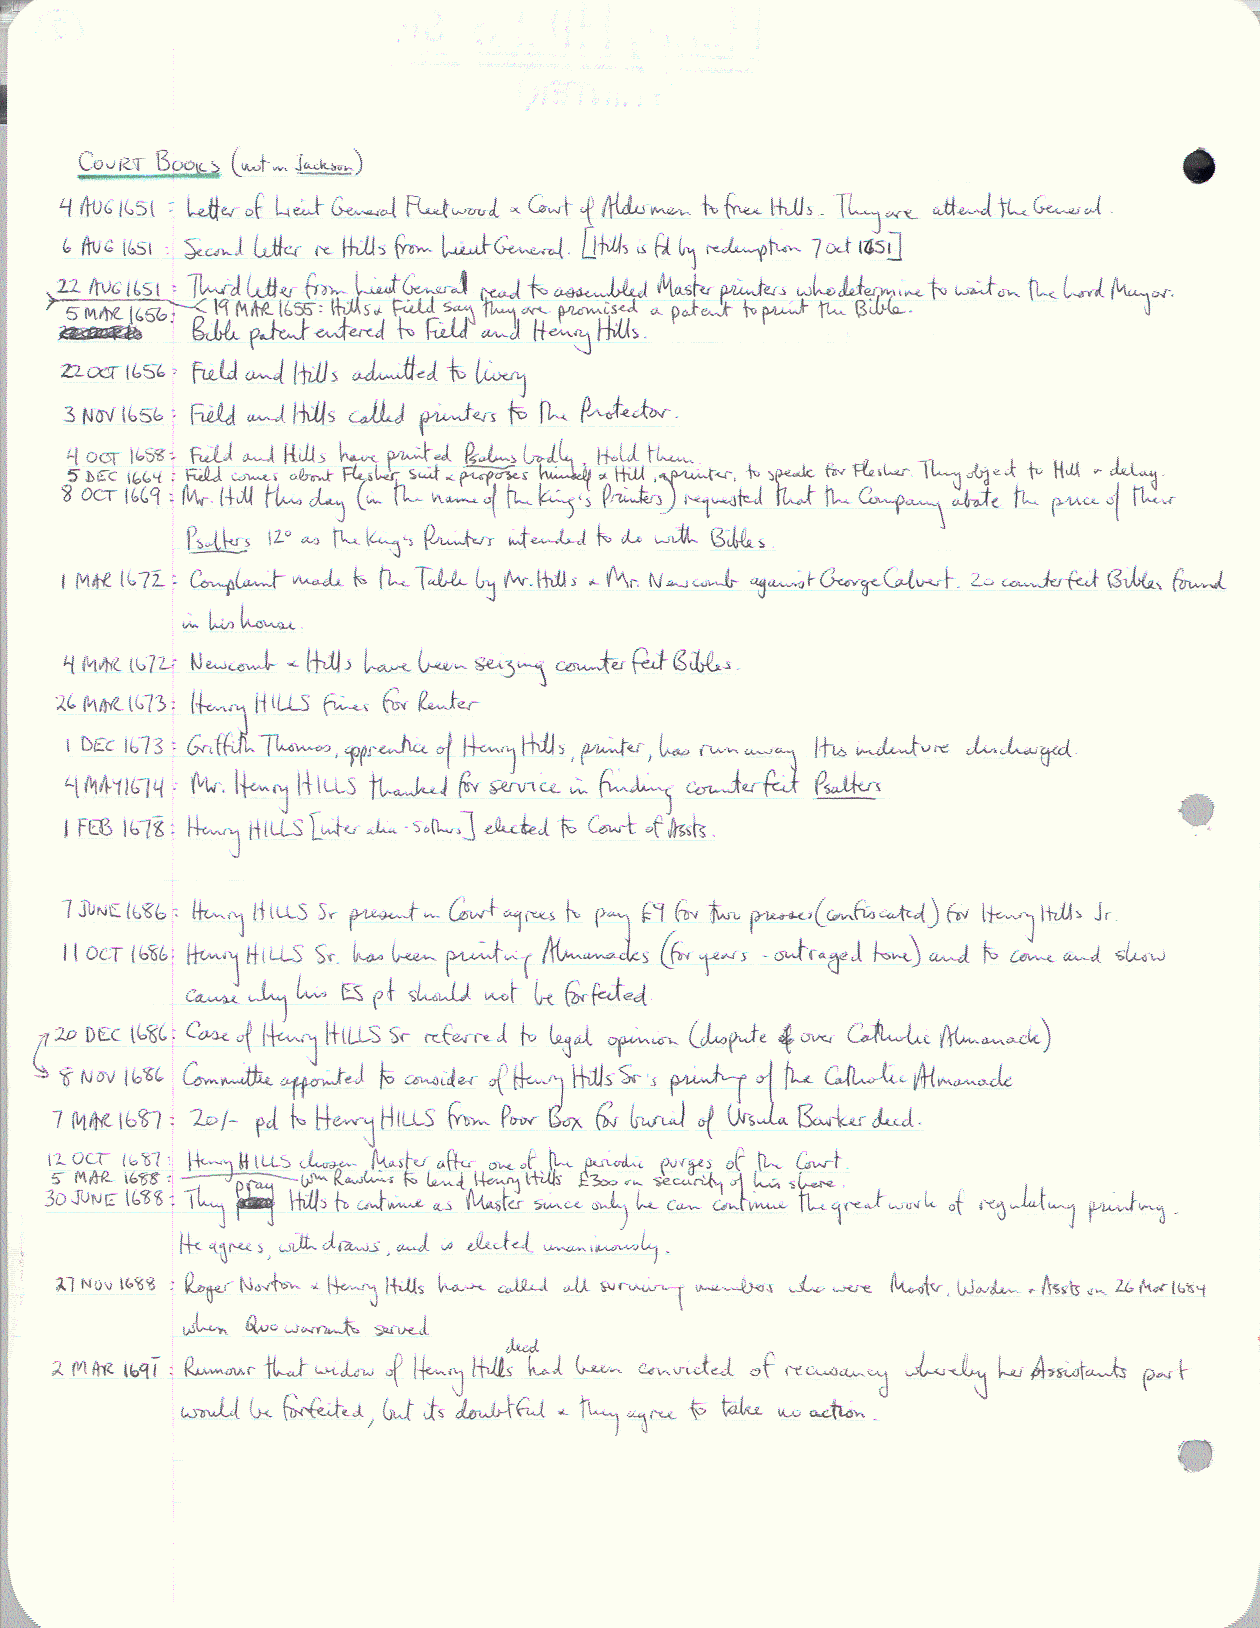 COURT BOOKS (not in Jackson)
4 AUG 1651 : Letter of Lieut General Fleetwood & Court of Aldermen to free Hills. They are attend the General.
6 AUG 1651 : Second letter re Hills from Lieut General. [Hills is fd by redemption 7 Oct 1651]
22 AUG 1651 : Third letter from Lieut General read to assembled Master printers who determine to wait on the Lord Mayor.
19 MAR 1655: Hills & Field say they are promised a patent to print the Bible.
5 MAR 1656: Bible patent entered to Field and Henry Hills.
22 OCT 1656: Field and Hills admitted to livery
3 NOV 1656: Field and Hills called printers to the Protector.
4 OCT 1658: Field and Hills have printed Psalms badly. Hold them.
5 DEC 1664: Field comes about Flesher suit & proposes himself & Hill, a printer, to speak for Flesher. They object to Hill & delay.
8 OCT 1669: Mr. Hill this day (in the name of the King's Printers) requested that the Company abate the price of their
Psalters 12° as the King's Printers intended to do with Bibles.
1 MAR 1672: Complaint made to the Table by Mr. Hills & Mr. Newcomb against George Calvert. 20 counterfeit Bibles found
in his house.
4 MAR 1672: Newcomb & Hills have been seizing counterfeit Bibles.
26 MAR 1673: Henry HILLS fines for Renter
1 DEC 1673: Griffith Thomas, apprentice of Henry Hills, printer, has run away His indenture discharged.
4 MAY 1674: Mr. Henry HILLS thanked for service in finding counterfeit Psalters
1 FEB 1678: Henry HILLS [inter alia - 5 others] elected to Court of Assts.
7 JUNE 1686: Henry HILLS Sr present in Court agrees to pay £9 for two presses (confiscated) for Henry Hills Jr.
11 OCT 1686: Henry HILLS Sr. has been printing Almanacks (for years - outraged tone) and to come and show
cause why his ES pt should not be forfeited.
20 DEC 1686: Case of Henry HILLS Sr referred to legal opinion (dispute over Catholic Almanack)
8 NOV 1686 Committee appointed to consider of Henry Hills Sr's printing of the Catholic Almanack
7 MAR 1687: 20/- pd to Henry HILLS from Poor Box for burial of Ursula Barker decd.
12 OCT 1687: Henry HILLS chosen Master after one of the periodic purges of the Court.
5 MAR 1688: Wm Rawlins to lend Henry Hills £300 on security of his share.
30 JUNE 1688: They pray Hills to continue as Master since only he can continue the great work of regulating printing.
He agrees, withdraws, and is elected unanimously.
27 NOV 1688 : Roger Norton & Henry Hills have called all surviving members who were Master, Warden & Assts on 26 Mar 1684
when Quo warranto served
2 MAR 1691: Rumour that widow of Henry Hills decd had been convicted of recusancy whereby her Assistants part
would be forfeited, but its doubtful & they agree to take no action.